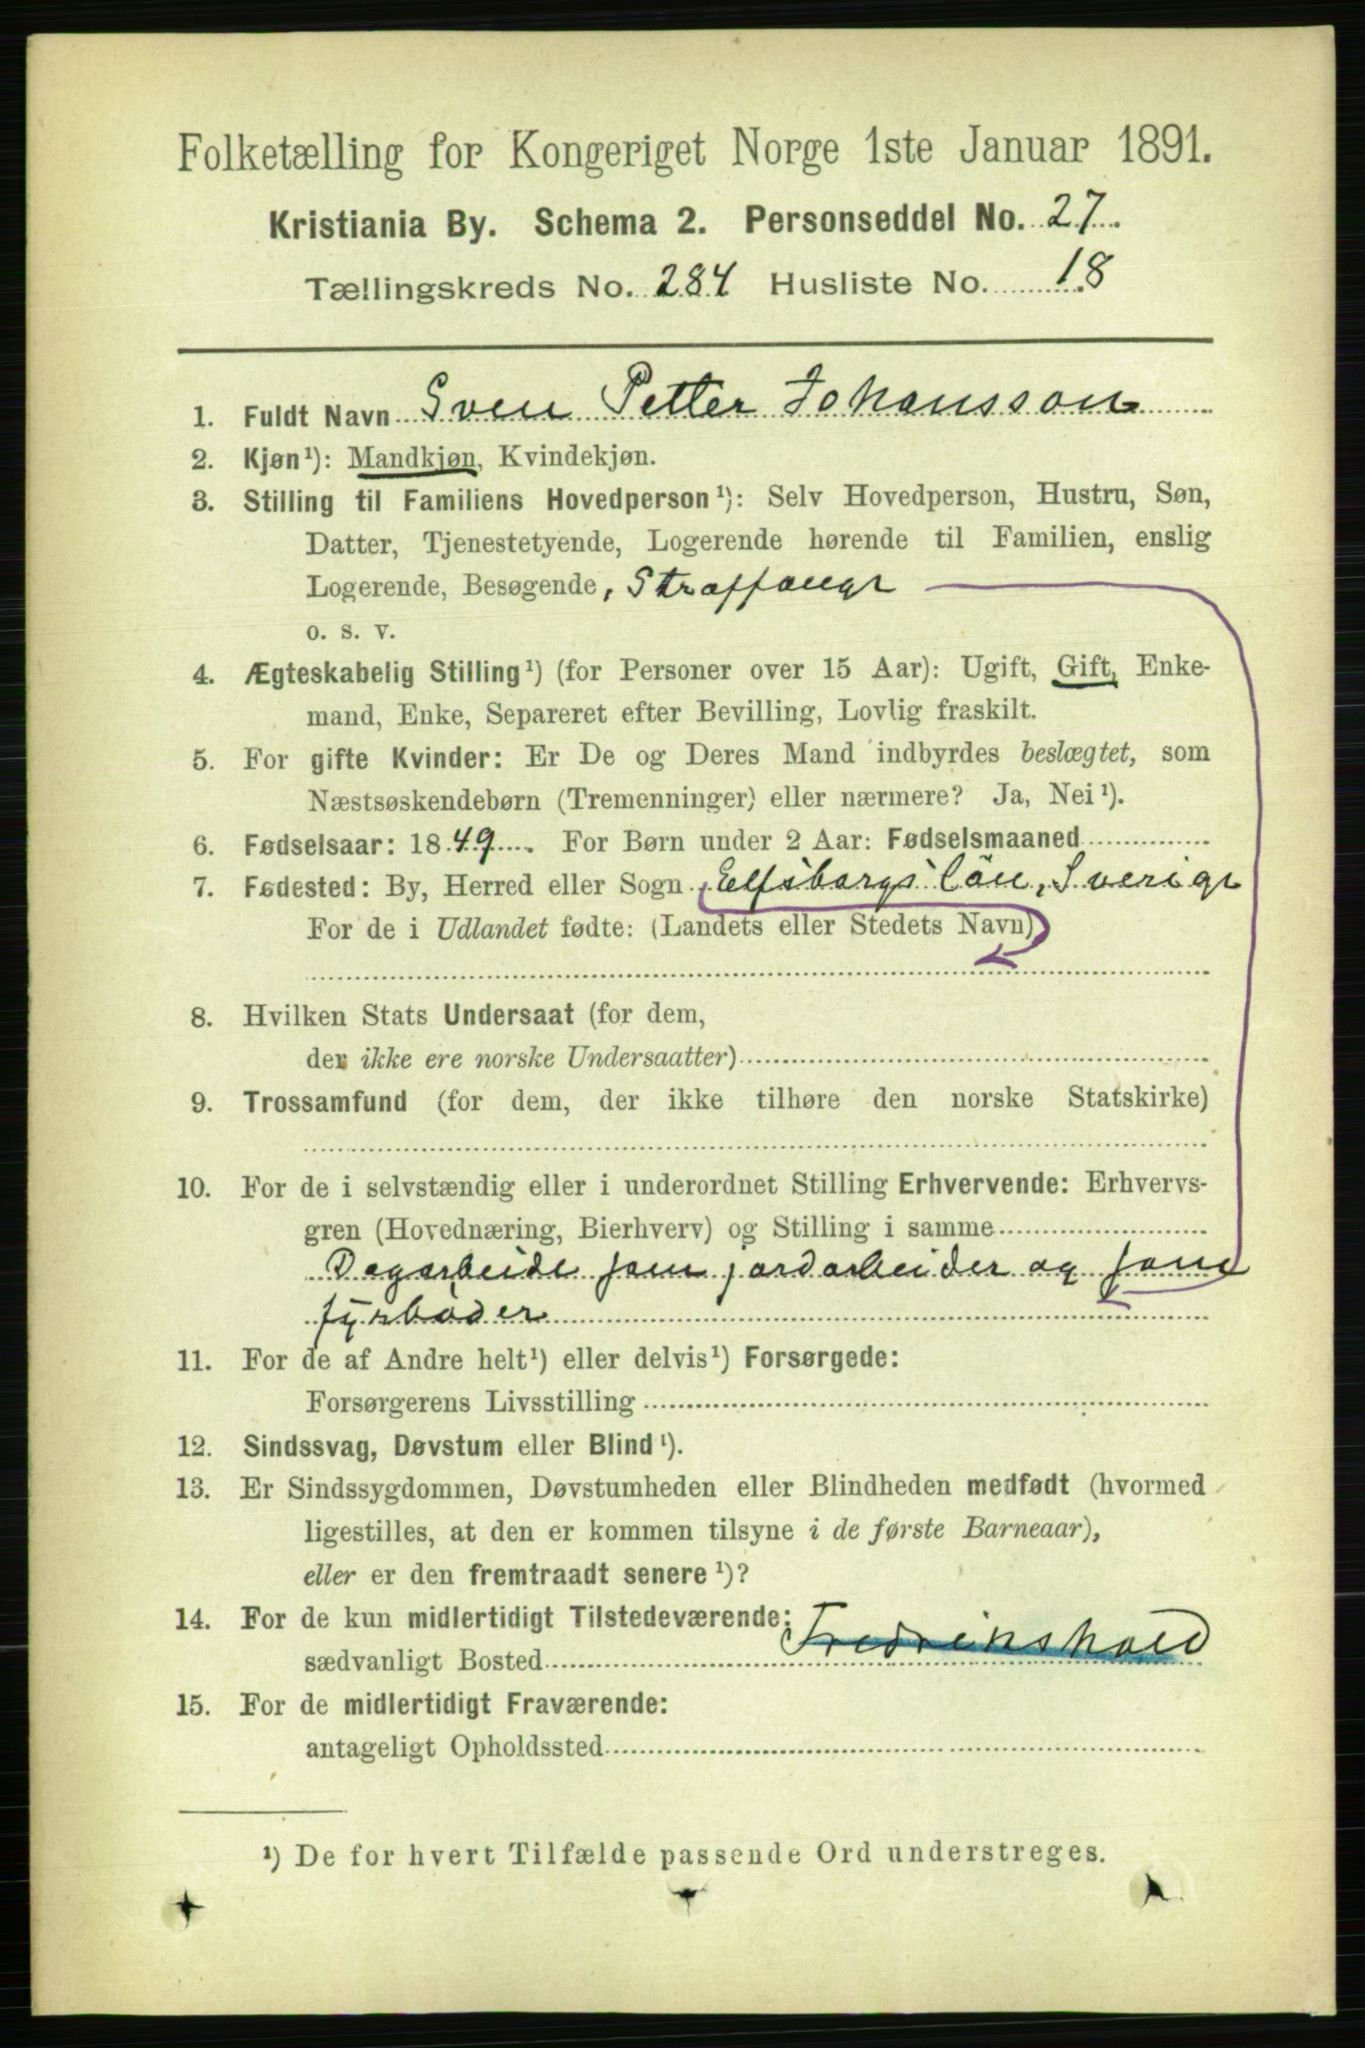 Folketælling for Kongeriget Norge 1ste Januar 1891.
Kristiania By. Schema 2. Personseddel No. 27
Tællingskreds No. 284 Husliste No. 18
1. Fuldt Navn Sven Petter Johansson
2. Kjøn¹): Mandkjøn, Kvindekjøn.
3. Stilling til Familiens Hovedperson¹): Selv Hovedperson, Hustru, Søn,
Datter, Tjenestetyende, Logerende hørende til Familien, enslig
Logerende, Besøgende, Straffange
o. s. v.
4. Ægteskabelig Stilling¹) (for Personer over 15 Aar): Ugift, Gift, Enke-
mand, Enke, Separeret efter Bevilling, Lovlig fraskilt.
5. For gifte Kvinder: Er De og Deres Mand indbyrdes beslægtet, som
Næstsøskendebørn (Tremenninger) eller nærmere? Ja, Nei¹).
6. Fødselsaar: 1849. For Børn under 2 Aar: Fødselsmaaned
7. Fødested: By, Herred eller Sogn Elfsborgs Län, Sverige
For de i Udlandet fødte: (Landets eller Stedets Navn)
8. Hvilken Stats Undersaat (for dem,
der ikke ere norske Undersaatter)
9. Trossamfund (for dem, der ikke tilhøre den norske Statskirke)
10. For de i selvstændig eller i underordnet Stilling Erhvervende: Erhvervs-
gren (Hovednæring, Bierhverv) og Stilling i samme
Dagarbeide som jordarbeider og som
fyrbøder
11. For de af Andre helt¹) eller delvis¹) Forsørgede:
Forsørgerens Livsstilling
12. Sindssvag, Døvstum eller Blind¹).
13. Er Sindssygdommen, Døvstumheden eller Blindheden medfødt (hvormed
ligestilles, at den er kommen tilsyne i de første Barneaar),
eller er den fremtraadt senere¹)?
14. For de kun midlertidigt Tilstedeværende:
sædvanligt Bosted Fredrikshald
15. For de midlertidigt Fraværende:
antageligt Opholdssted
¹) De for hvert Tilfælde passende Ord understreges.